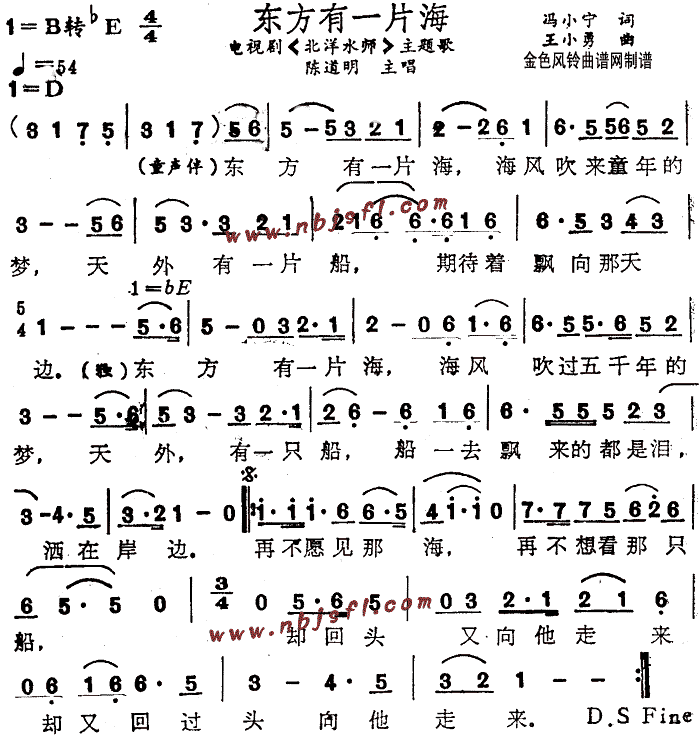 东方有一片海
1=B转♭E 4/4
电视剧《北洋水师》主题歌
冯小宁 词
王小勇 曲
♩=54
陈道明 主唱
金色风铃曲谱网制谱
1=D
(3 1 7 5 | 3 1 7) 5 6 | 5 - 5 3 2 1 | 2 - 2 6 1 | 6· 5 56 5 2 |
(童声伴)东 方 有一片 海, 海风吹来童年的
3 - - 5 6 | 5 3·3 2 1 | 2 1 6 6·6 1 6 | 6·5 3 4 3 |
www.nbjsfl.com
梦, 天 外 有一片 船, 期待着 飘向那天
1=bE
5/4 1 - - - 5·6 | 5 - 0 3 2·1 | 2 - 0 6 1·6 | 6· 5 5·6 5 2 |
边.(独)东 方 有一片海, 海风 吹过五千年的
3 - - 5·6 | 5 3 - 3 2·1 | 2 6 - 6 1 6 | 6· 5 5 5 2 3 |
梦, 天 外, 有一只船, 船一去飘 来的都是泪,
3 - 4·5 | 3·2 1 - 0 | i·i i·6 6·5 | 4 i·i 0 | 7·7 7 5 6 2 6 |
洒在岸边. 再不愿见那 海, 再不想看那只
6 5·5 5 0 | 3/4 0 5·6 5 | 0 3 2·1 2 1 | 6
www.nbjsfl.com
船, 却回头 又向他走 来
0 6 1 6 6·5 | 3 - 4·5 | 3 2 1 - - :|
却又回过 头 向他 走 来. D.S Fine